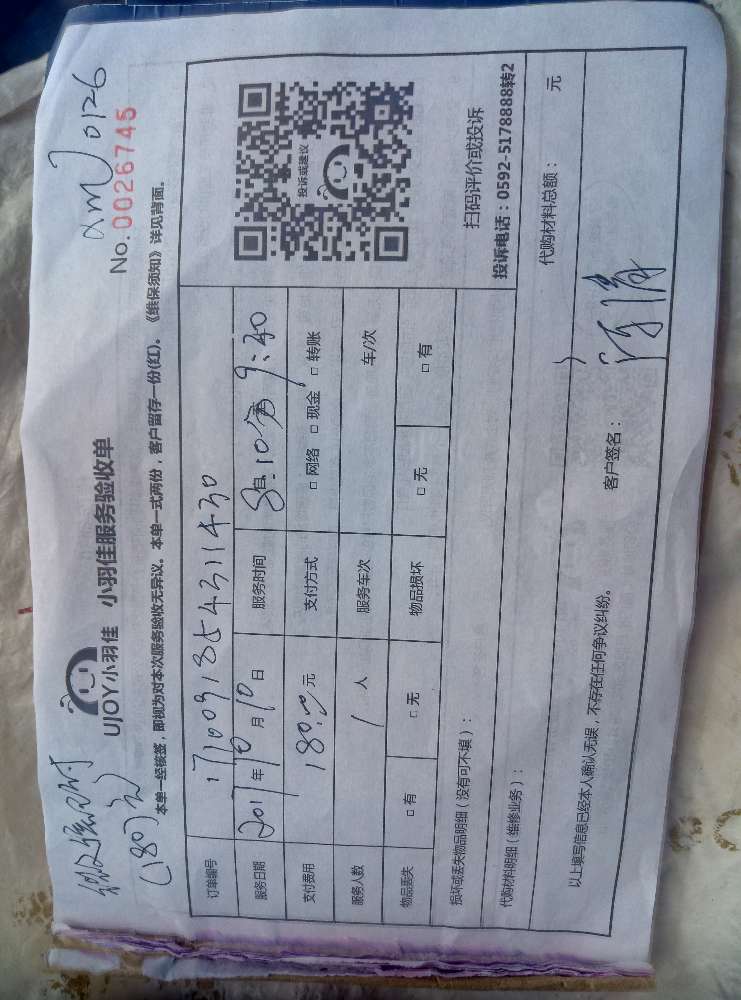 (180)元
xmJ0126
UJOY小羽佳 小羽佳服务验收单
No. 0026745
本单一经核签，即视为对本次服务验收无异议。本单一式两份，客户留存一份(红)。《维保须知》详见背面。
订单编号 1710091354311430
服务日期 2017年10月10日 服务时间 8:10 9:40
支付费用 180.00元 支付方式 □ 网络 □ 现金 □ 转账
服务人数 1人 服务车次 车/次
物品丢失 □ 有 □ 无 物品损坏 □ 无 □ 有
投诉或建议
扫码评价或投诉
投诉电话：0592-5178888转2
损坏或丢失物品明细（没有可不填）：
代购材料明细（维修业务）：
代购材料总额： 元
以上填写信息已经本人确认无误，不存在任何争议纠纷。
客户签名：